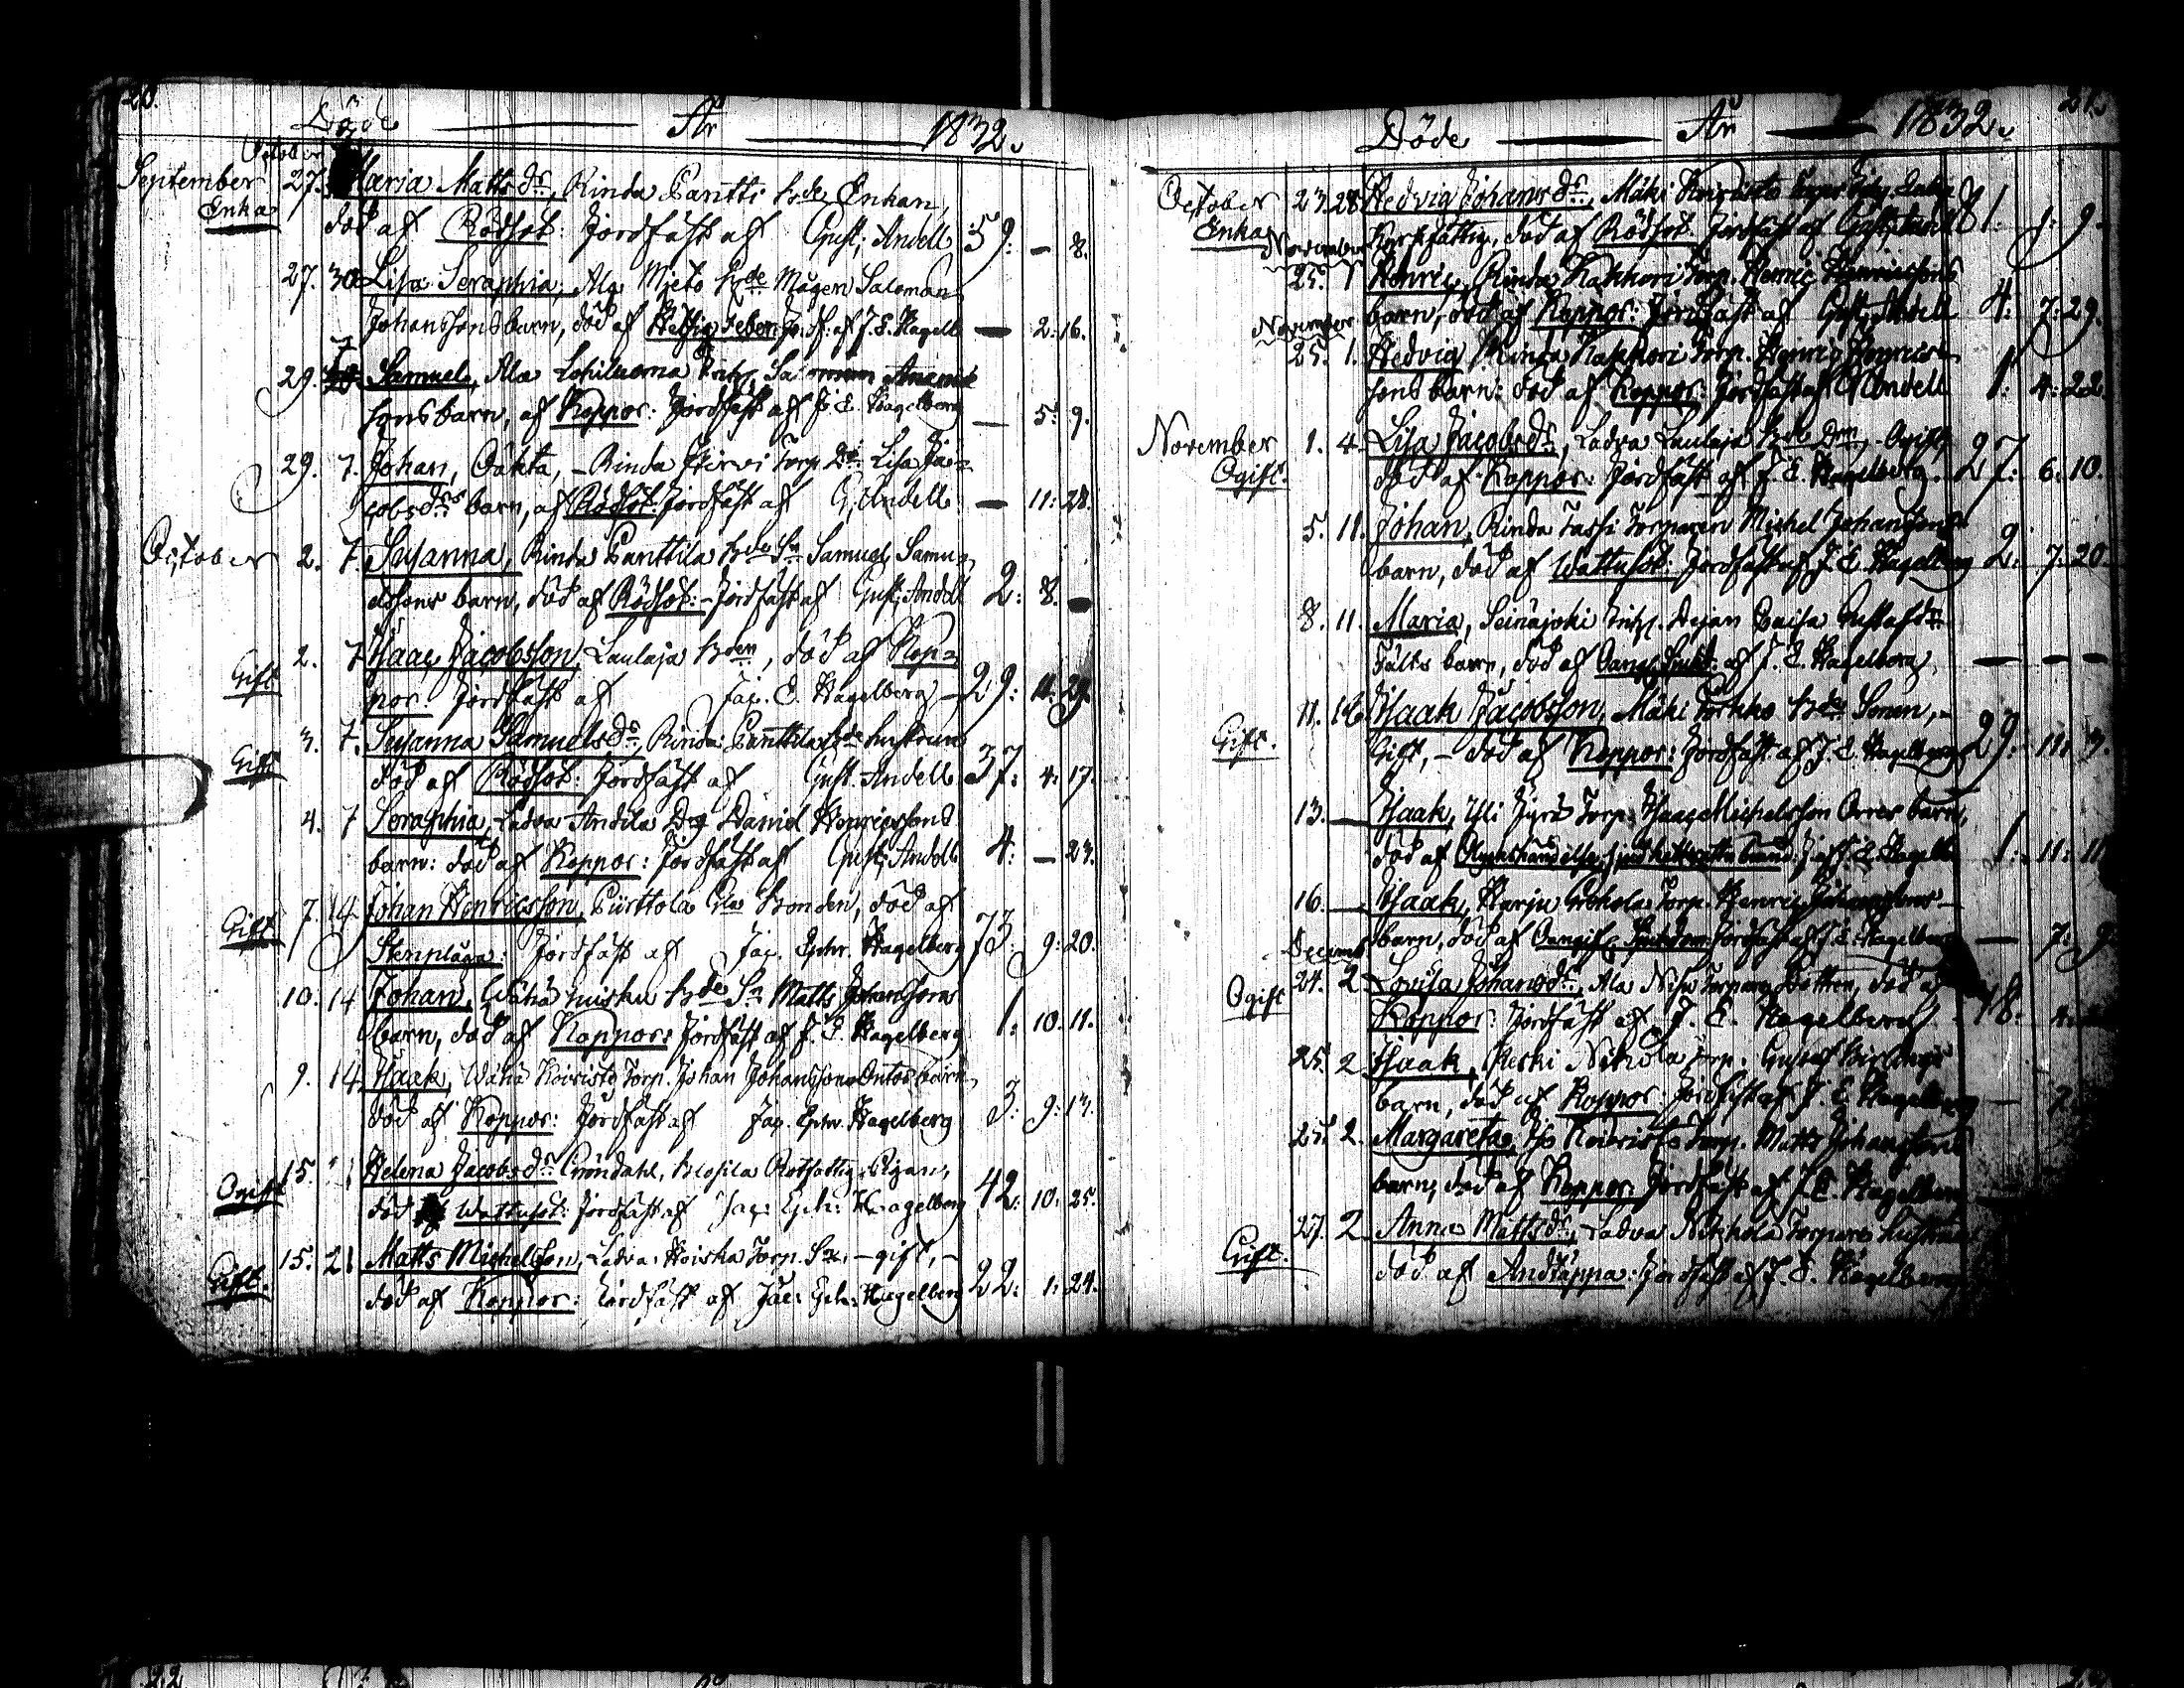 20.
Döde — År — 1832.
October
September 27. Maria Mattsdr, Rinda Pantti bde Enkan,
Enka död af Rödsot: Jordfäst af Gust: Andell 59: — 8.
27. 30 Lisa Seraphia, Ala Mieto bde Mågen Salomon
Johanssons barn, död af af J. E. Hagelb — 2: 16.
7
29. Samuel, Ala
sons barn, af Koppor: Jordfäst af J. E. Hagelberg — 5: 9.
29. 7. Johan, Oäkta, – Rinda Hirvi Torp. Dr Lisa Ja=
cobsdrs barn, af Rödsot: Jordfäst af G. Andell — 11: 28.
October 2. 7. Susanna, Rinda Panttila bde Sn Samuel Samu=
elssons barn, död af Rödsot: – Jordfäst af Gust: Andell 2: 8. —
2. 7. Isaac Jacobsson, Laulaja bden, död af Kop=
Gift por. Jordfäst af Jac. E. Hagelberg – 29: 11: 29.
3. 7. Susanna Samuelsdr, Rinda Panttila bde hustrun
Gift död af Rödsot: Jordfäst af Gust. Andell 37: 4: 17.
4. 7 Seraphia, Ladva Andila Daniel Henricssons
barn: död af Koppor: Jordfäst af Gust: Andell 4: — 23.
7. 14. Johan Henricsson, Piirttola Gla bonden, död af
Gift Stenplåga: Jordfäst af Jac. Ephr. Hagelberg 73: 9: 20.
10. 14 Johan, Wähä bde Sn Matts Johanssons
barn, död af Koppor: Jordfäst af J. E. Hagelberg 1: 10. 11.
9. 14. Isaak, Wähä Koivisto Torp. Johan Johansson Ontos barn,
död af Koppor: Jordfäst af Jac. Ephr. Hagelberg 3: 9: 13.
15. Helena Jacobsdr Gröndahl, Rotfattig Pigan,
Ogift död af Wattusot: Jordfäst af Jac: Eph: Hagelberg 42: 10: 25.
15. 21 Matts Michelsson, Ladva Torp. Sn, – gift, –
Gift. död af Koppor: Jordfäst af Jac: Eph: Hagelberg 22: 1: 24.
21.
Döde — År — 1832.
October 23. 28 Hedvig Johansdr, Mäki Koivisto
Enka Kyrkfattig, död af Rödsot: Jordfäst af Gust: Andell 81: 9.
November
25. 1 Henric, Rinda Kakkori Torp. Henric Henricssons
barn, död af Koppor: Jordfäst af Gust: Andell 4: 7: 29.
November
25. 1. Hedvig, Rinda Torp. Henric Henrics=
sons barn: död af Koppor: Jordfäst af G. Andell 1: 4: 22.
November 1. 4. Lisa Jacobsdr, Ladva Laulaja bde Drn, – Ogift,
Ogift. död af Koppor: Jordfäst af J. E. Hagelberg. 27: 6: 10.
5. 11. Johan, Rinda Tassi Torparen Michel Johanssons
barn, död af Wattusot: Jordfäst af J. E. Hagelberg 2: 7: 20.
8. 11. Maria, Seinäjoki Inh. Pigan Caisa Gustafsdr
Fälts barn, död af af J. E. Hagelberg — — —
11. Isaak Jacobsson, Mäki bde Sonen, –
Gift. Gift, – död af Koppor: Jordfäst af J. E. Hagelberg 29: 11: 3.
13. — Isaak, Yli Jyrä Torp: Isaac Michelsson Orres barn,
död af Olyckshändelse, J. E. Hagelb 1: 11: 11
16. — Isaak, Harju Torp. Henric
barn, död af Jordfäst af J. E. Hagelberg — 7: 9.
Decemb
24. 2. Lovisa Johansdr, Ala Torpare Dottren, död af
Ogift Koppor: Jordfäst af J. E. Hagelberg 18:
25. 2. Isaak, Keski Torp. Gustaf
barn, död af Koppor: Jordfäst af J. E. Hagelberg — 7
25. 2. Margareta, Iso Koivisto Torp. Matts Johanssons
barn, död af Koppor: Jordfäst af J. E. Hagelberg
27. 2 Anna Mattsdr, Ladva Torpare hustru
Gift. död af Andtäppa: Jordfäst af J. E. Hagelberg
22